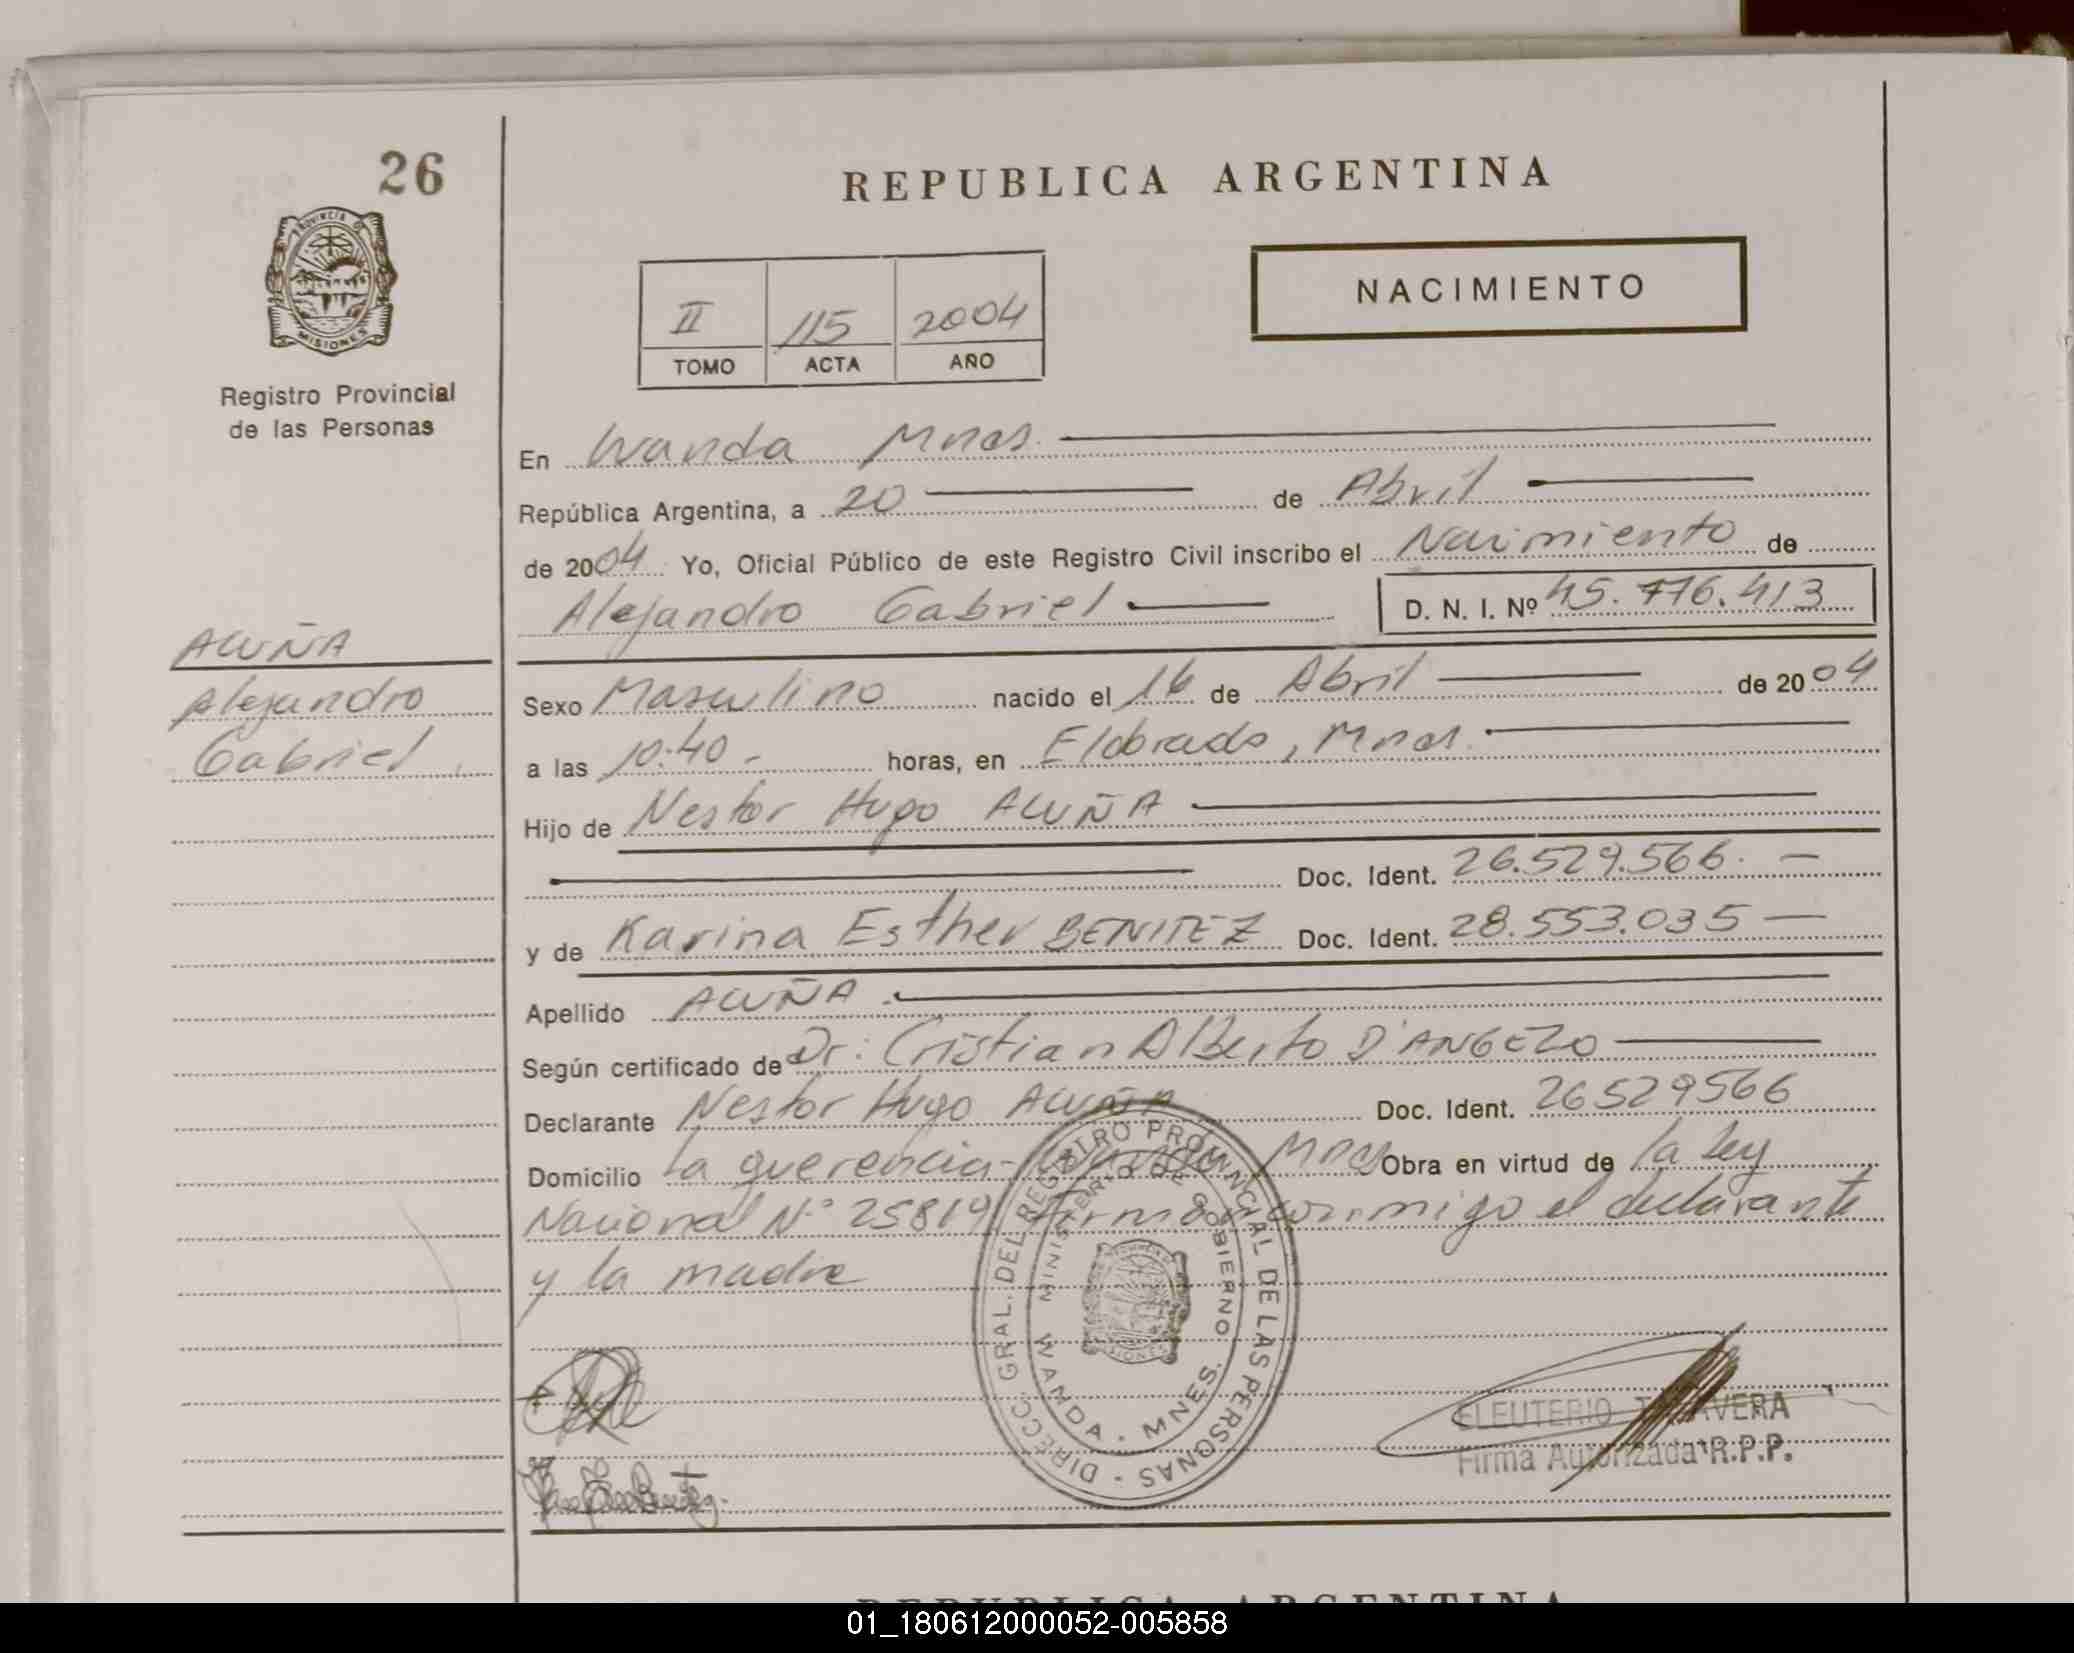 26
REPUBLICA ARGENTINA
PROVINCIA DE
MISIONES
Registro Provincial
de las Personas
NACIMIENTO
II 115 2004
TOMO ACTA AÑO
En Wanda Mnes.
República Argentina, a 20 de Abril
de 2004 Yo, Oficial Público de este Registro Civil inscribo el Nacimiento de
Alejandro Gabriel D. N. I. Nº 45.776.413
ACUÑA
Alejandro
Gabriel
Sexo Masculino nacido el 16 de Abril de 2004
a las 10:40 horas, en Eldorado, Mnes.
Hijo de Nestor Hugo ACUÑA
Doc. Ident. 26.529.566.
y de Karina Esther BENITEZ Doc. Ident. 28.553.035
Apellido ACUÑA
Según certificado de Dr: Cristian Alberto D'ANGELO
Declarante Nestor Hugo ACUÑA Doc. Ident. 26529566
Domicilio La querencia - Wanda Mnes Obra en virtud de la ley
Nacional Nº 25819 Firman conmigo el declarante
y la madre
DIRECC. GRAL. DEL REGISTRO PROVINCIAL DE LAS PERSONAS
MINISTERIO DE GOBIERNO
WANDA - MNES.
MISIONES
ELEUTERIO TALAVERA
Firma Autorizada R.P.P.
REPUBLICA ARGENTINA
01_180612000052-005858